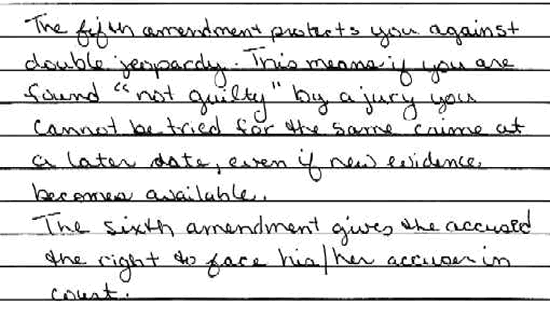 The fifth amendment protects you against
double jeopardy. This means if you are
found "not guilty" by a jury you
cannot be tried for the same crime at
a later date, even if new evidence
becomes available.
The sixth amendment gives the accused
the right to face his/her accuser in
court.